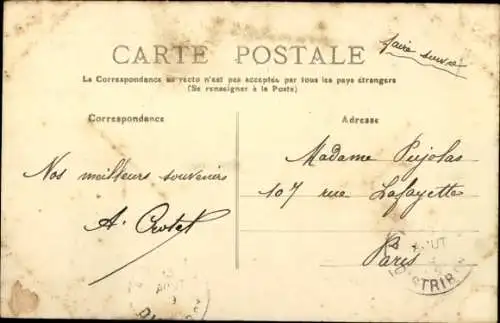 CARTE POSTALE
faire suivre
La Correspondance au recto n'est pas acceptée par tous les pays étrangers
(Se renseigner à la Poste)
Correspondance
Adresse
Nos meilleurs souvenirs
Madame Pujolas
107 rue Lafayette
Paris
AOUT
DISTRIB